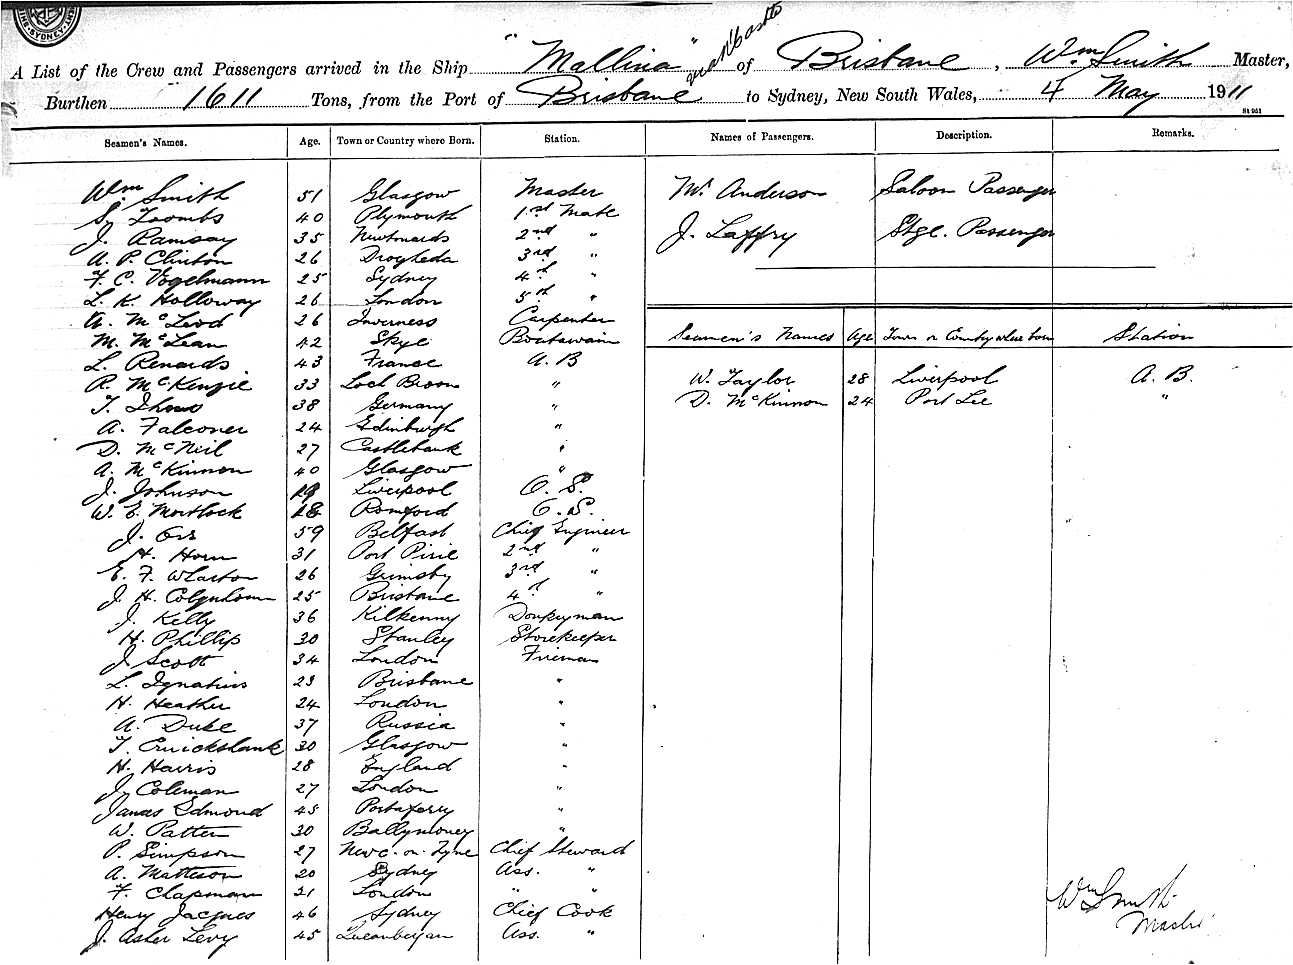 SYDNEY
A List of the Crew and Passengers arrived in the Ship "Mallina" of Brisbane, Wm Smith Master,
Burthen 1611 Tons, from the Port of Brisbane to Sydney, New South Wales, 4 May 1911
Seamen's Names. Age. Town or Country where Born. Station. Names of Passengers. Description. Remarks.
Wm Smith 51 Glasgow Master Mr Anderson Saloon Passenger
S. Toombs 40 Plymouth 1st Mate
J. Ramsay 35 Newtonards 2nd " J. Laffry Stge. Passenger
A. P. Clinton 26 Drogheda 3rd "
F. C. Vogelmann 25 Sydney 4th "
L. K. Holloway 26 London 5th "
A. McLeod 26 Inverness Carpenter
M. McLean 42 Skye Boatswain Seamen's Names Age Town or Country where born Station
L. Renards 43 France A. B
R. McKenzie 33 Loch Broom " W. Taylor 28 Liverpool A. B.
T. 38 Germany " D. McKinnon 24 Port Lee "
A. Falconer 24 Edinburgh "
D. McNeil 27 Castlebank "
A. McKinnon 40 Glasgow "
J. Johnson 19 Liverpool O. S.
W. E. Mortlock 18 Romford O. S.
J. Orr 59 Belfast Chief Engineer
H. Horn 31 Port Pirie 2nd "
E. F. Wharton 26 Grimsby 3rd "
J. H. Colquhoun 25 Brisbane 4th "
J. Kelly 36 Kilkenny Donkeyman
H. Phillip 30 Stanley Storekeeper
J. Scott 34 London Fireman
L. Ignatius 23 Brisbane "
H. Heather 24 London "
A. Duke 37 Russia "
T. Cruickshank 30 Glasgow "
H. Harris 28 England "
J. Coleman 27 London "
James Edmond 45 Portaferry "
W. Patten 30 Ballymoney "
P. Simpson 27 Newc. on Tyne Chief Steward
A. Matteson 20 Sydney Ass. "
F. Chapman 21 London " "
Henry Jacques 46 Sydney Chief Cook Wm Smith
J. Asher Levy 45 Queanbeyan Ass. " Master